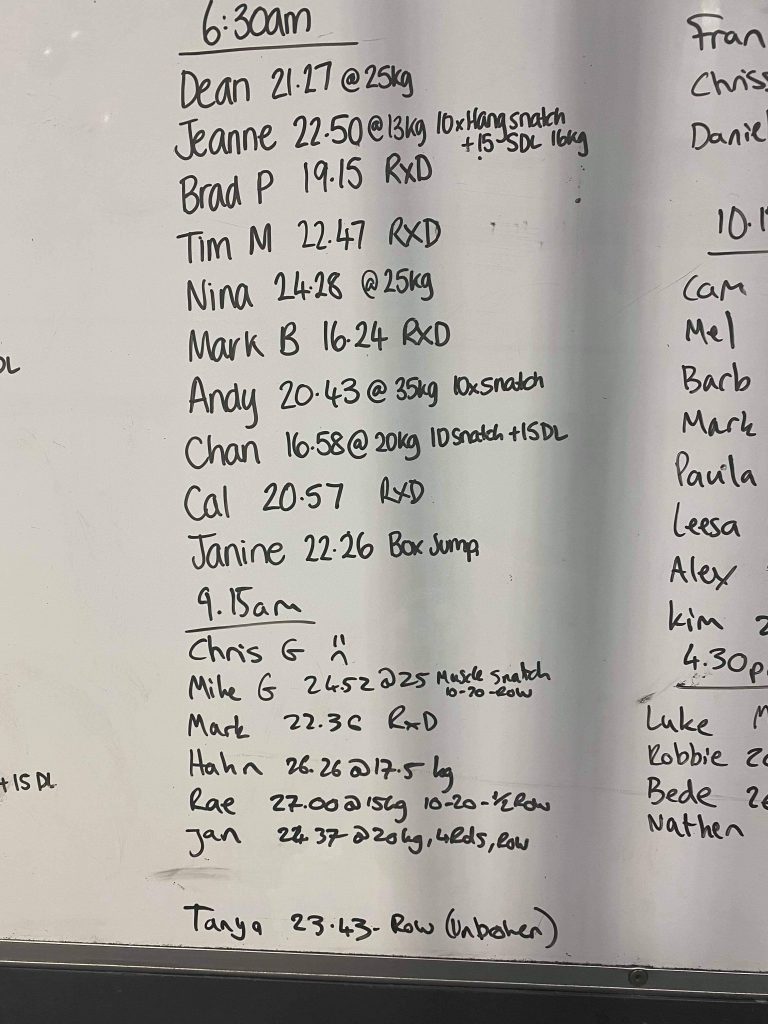 6:30am
Dean 21.27 @25kg
Jeanne 22.50@13kg 10xHang snatch
+15-SDL 16kg
Brad P 19.15 RxD
Tim M 22.47 RXD
Nina 24.28 @25kg
Mark B 16.24 RXD
Andy 20.43@35kg 10xsnatch
Chan 16.58@20kg 10snatch+15DL
Cal 20.57 RxD
Janine 22.26 Box Jump
9.15am
Chris G
Mike G 24.52@25 Muscle Snatch
10-20-ROW
Mark 22.36 RxD
Hahn 26.26@17.5 kg
Rae 27.00@15kg 10-20-1/2Row
Jan 22.37@20kg, 4Rds, Row
Tanya 23.43- Row (Unbroken)
DL
+15 DL
Fran
Chris
Daniel
10.1
Cam
Mel
Barb
Mark
Paula
Leesa
Alex
Kim 2
4.30p
Luke M
Robbie 2
Bede 2
Nathen